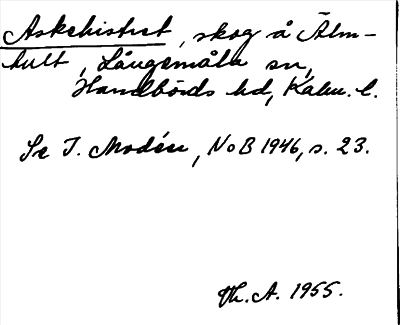 Askehistret, skog å Älm-
hult, Långemåla sn,
Handbörds hd, Kalm. l.
Se I. Modéer, NoB 1946, s. 23.
Th. A. 1955.